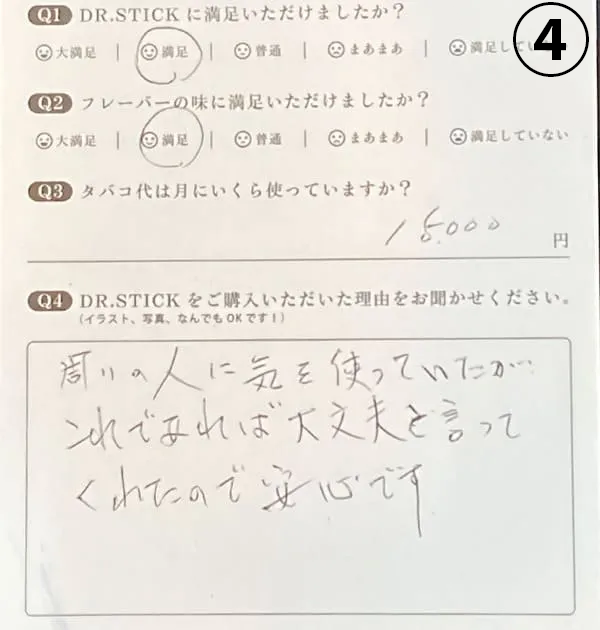 ④
Q1 DR.STICK に満足いただけましたか？
大満足 | 満足 | 普通 | まあまあ | 満足して
Q2 フレーバーの味に満足いただけましたか？
大満足 | 満足 | 普通 | まあまあ | 満足していない
Q3 タバコ代は月にいくら使っていますか？
15.000 円
Q4 DR.STICK をご購入いただいた理由をお聞かせください。
（イラスト、写真、なんでもOKです！）
周りの人に気を使っていたが
これであれば大丈夫と言って
くれたので安心です